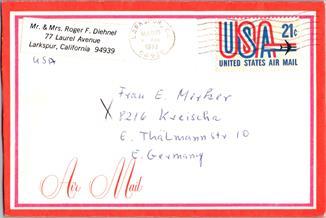 Mr. & Mrs. Roger F. Diehnel
77 Laurel Avenue
Larkspur, California 94939
USA
USA 21¢
UNITED STATES AIR MAIL
Frau E. Mirker
8216 Kreischa
E. Thälmannstr 10
E. Germany
Air Mail